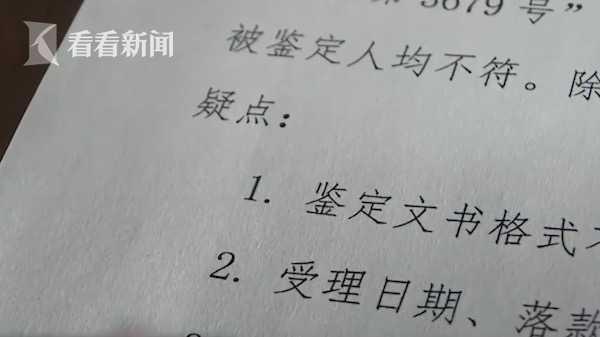 看看新闻
第 3679 号”
被鉴定人均不符。除
疑点：
1. 鉴定文书格式
2. 受理日期、落款